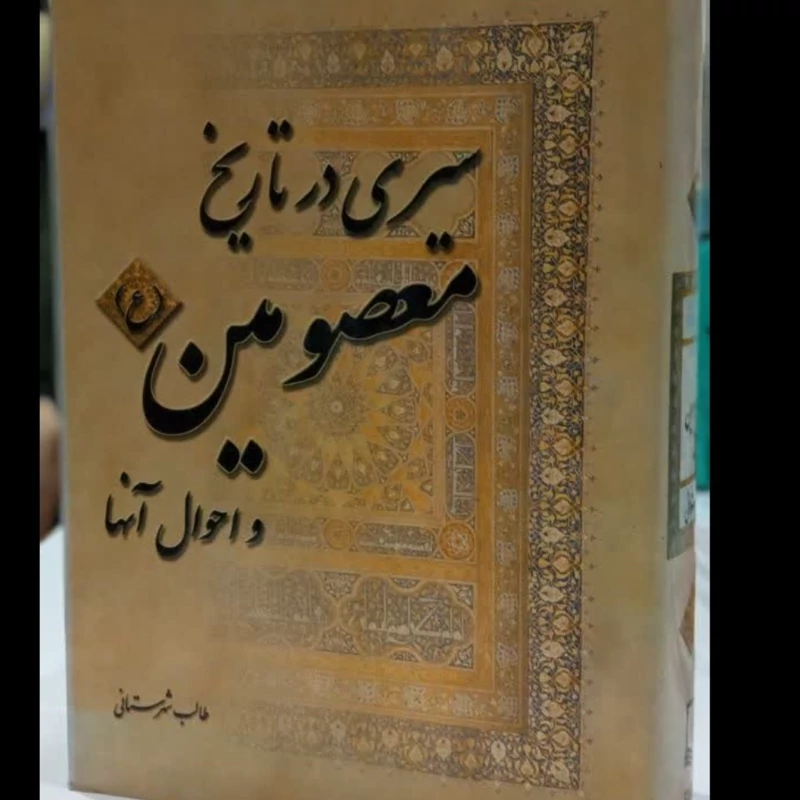 سیری در تاریخ
معصومین ع
و احوال آنها
طالب شهرستانی